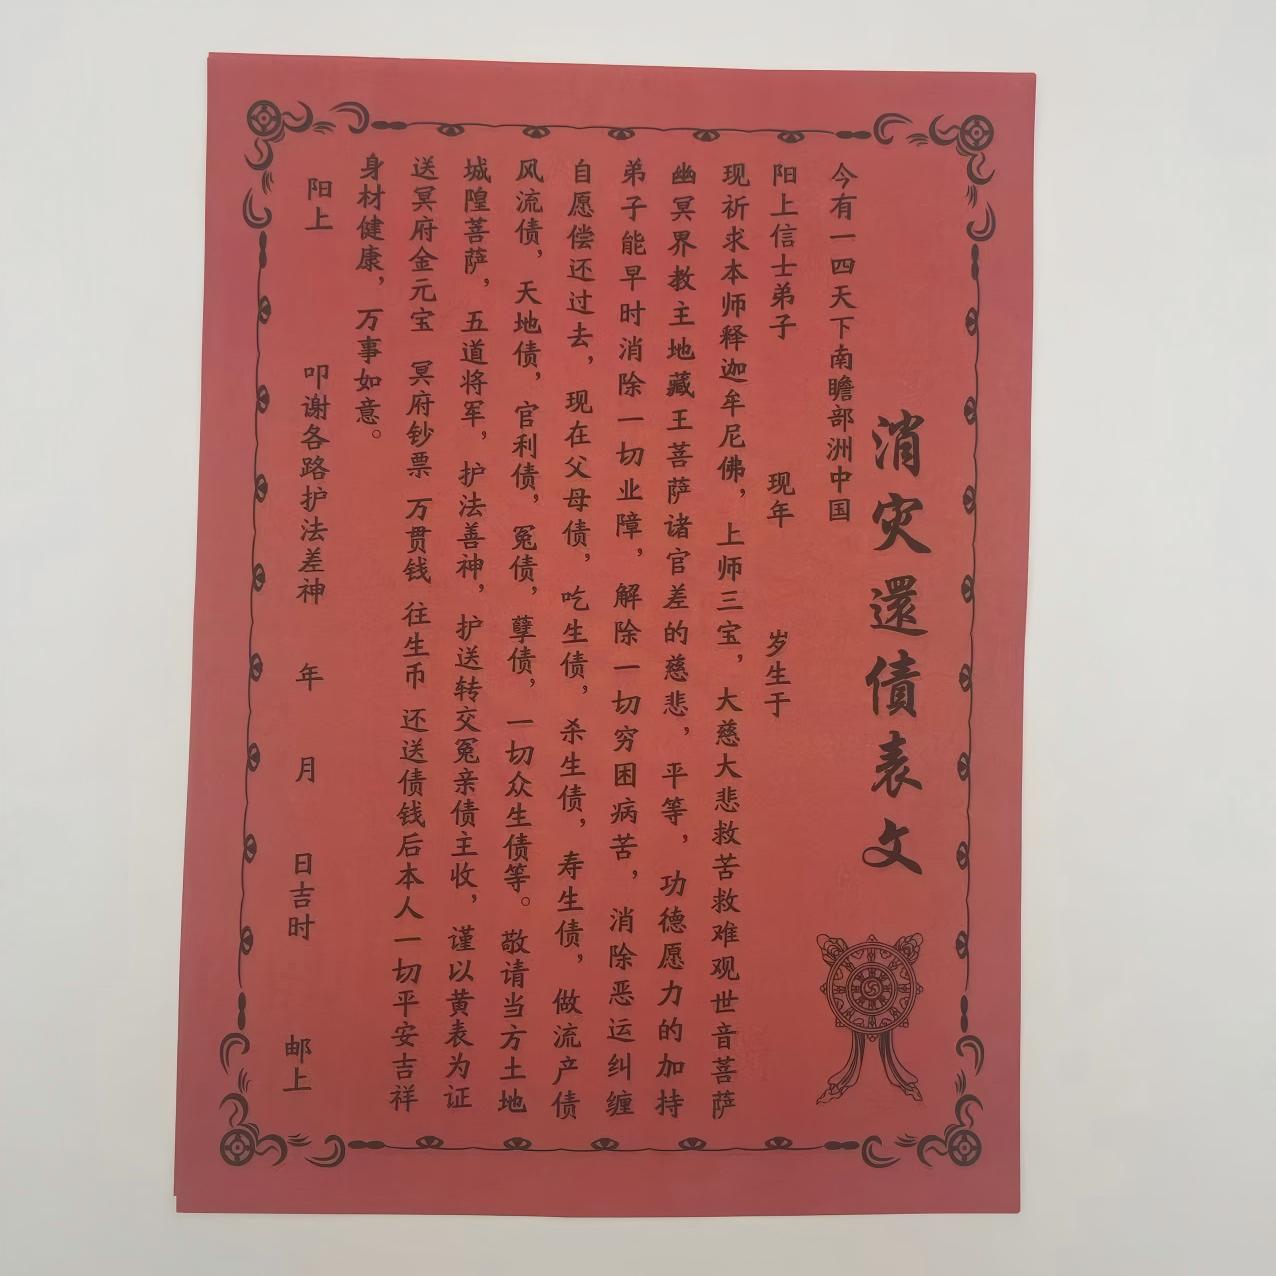 消灾還債表文
今有一四天下南瞻部洲中国
阳上信士弟子 现年 岁生于
现祈求本师释迦牟尼佛，上师三宝，大慈大悲救苦救难观世音菩萨
幽冥界教主地藏王菩萨诸官差的慈悲，平等，功德愿力的加持
弟子能早时消除一切业障，解除一切穷困病苦，消除恶运纠缠
自愿偿还过去，现在父母债，吃生债，杀生债，寿生债，做流产债
风流债，天地债，官利债，冤债，孽债，一切众生债等。敬请当方土地
城隍菩萨，五道将军，护法善神，护送转交冤亲债主收，谨以黄表为证
送冥府金元宝 冥府钞票 万贯钱 往生币 还送债钱后本人一切平安吉祥
身材健康，万事如意。
阳上 叩谢各路护法差神 年 月 日吉时 邮上